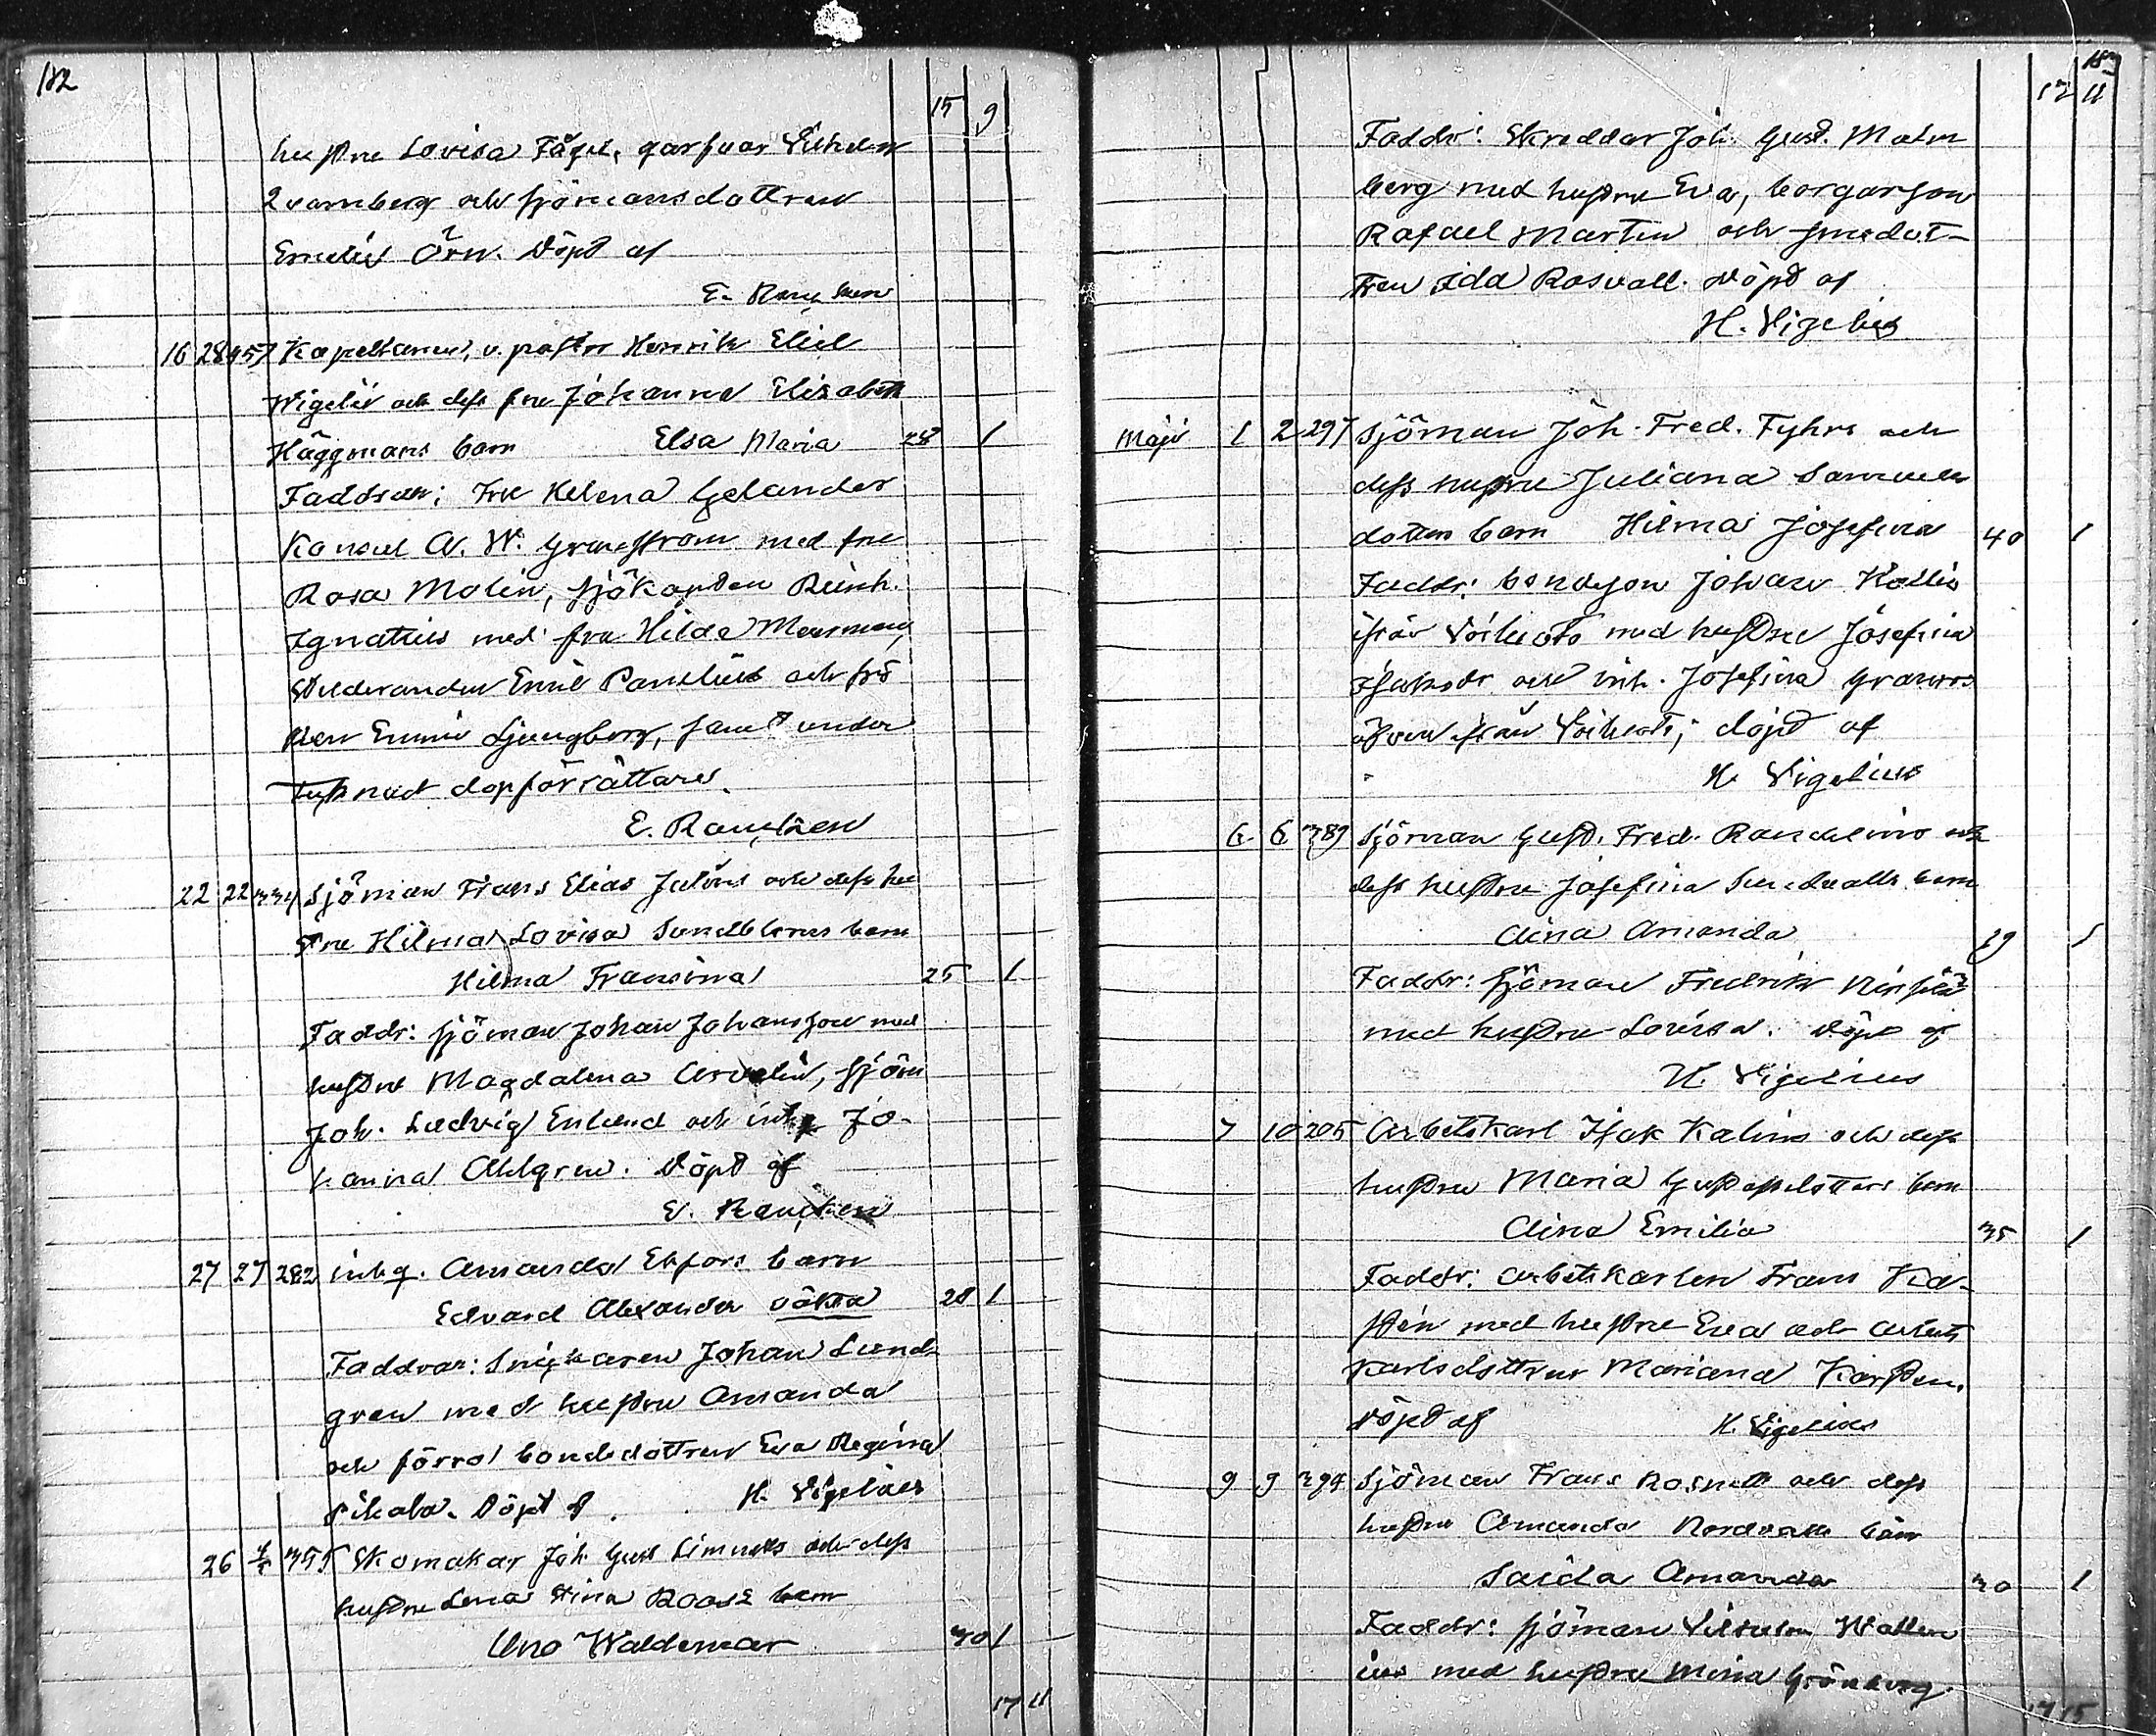 182
15 9
hustru Lovisa Fågel, garfvar Vilhelm
Qvarnberg och sjömansdottren
Emelie Örn. Döpt af
E. Rancken
16 28 457 Kapellanen, v. pastor Henrik Eliel
Wigelii och dess fru Johanna Elisabeth
Häggmans barn Elsa Maria 28 1
Faddrar: Fru Helena Gelander
Konsul A. W. Grönström med fru
Rosa Molin, sjökapten Reinh.
Ignatius med fru Hilda Moerman,
Studeranden Emil Panelius och frö
ken Emmi Ljungberg, samt under
tecknad dopförrättare.
E. Rancken
22 22 334 Sjöman Frans Elias Julins och dess hu
stru Hilma Lovisa Sundbloms barn
Hilma Fransina 25 1
Faddr: sjöman Johan Johansson med
hustru Magdalena Arvelin, sjöm
Joh. Ludvig Enlund och inh Jo-
hanna Ahlgren. Döpt af
E. Rancken
27 27 282 inhq. Amanda Ekfors barn
Edvard Alexander oäkta 28 1
Faddrar: Snickaren Johan Lund-
gren med hustru Amanda
och förra bondedottren Eva Regina
Pihala. Döpt af H. Vigelius
26 355 Skomakar Joh. Gust Limnells och dess
hustru Lena Stina Roos barn
Uno Waldemar 30 1
17 11
183
17 11
Faddr: Skreddar Joh. Gust. Malm
berg med hustru Eva, borgarson
Rafael Martin och smedot-
tren Ida Rosvall. Döpt af
H. Vigelius
Maji 1 2 297 Sjöman Joh. Fred. Fyhrs och
dess hustru Juliana Samuels
dotters barn Hilma Josefina 40 1
Faddr: bondeson Johan Kallio
ifrån Vörå med hustru Josefina
och inh. Josefina Granroos
äfven ifrån; döpt af
H. Vigelius
6 6 389 Sjöman Gust. Fred. Randelins och
dess hustru Josefina Sundvalls barn
Aina Amanda 29 1
Faddr: sjöman Fredrik
med hustru Lovisa. Döpt af
H. Vigelius
7 10 205 Arbetskarl Isak Kalins och dess
hustru Maria Gustafsdotters barn
Aina Emilia 35 1
Faddr: arbetskarlen Frans Ka-
stén med hustru Eva och arbets
karlsdottren Mariana Karsten.
Döpt af H. Vigelius
9 9 394 Sjöman Frans Rosnell och dess
hustru Amanda Nordvalls barn
Saida Amanda 30 1
Faddr: sjöman Vilhelm Wallen
ius med hustru Mina Grönberg.
17 15